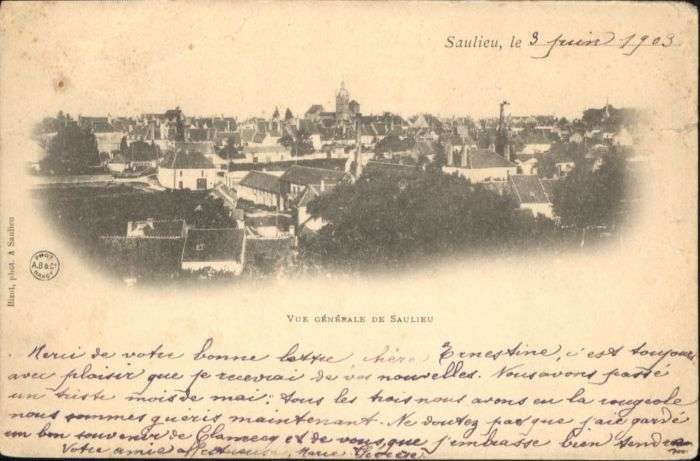 Saulieu, le 3 juin 1903
Bizot, phot. A Saulieu
PHOT
A.B & Cie
NANCY
VUE GÉNÉRALE DE SAULIEU
Merci de votre bonne lettre chère Ernestine, c'est toujours
avec plaisir que je recevrai de vos nouvelles. Nous avons passé
un triste mois de mai: tous les trois nous avons eu la rougeole
nous sommes guéris maintenant. Ne doutez pas que j'aie gardé
un bon souvenir de Clamecy et de vous, que j'embrasse bien
Votre amie affectueuse, Marie